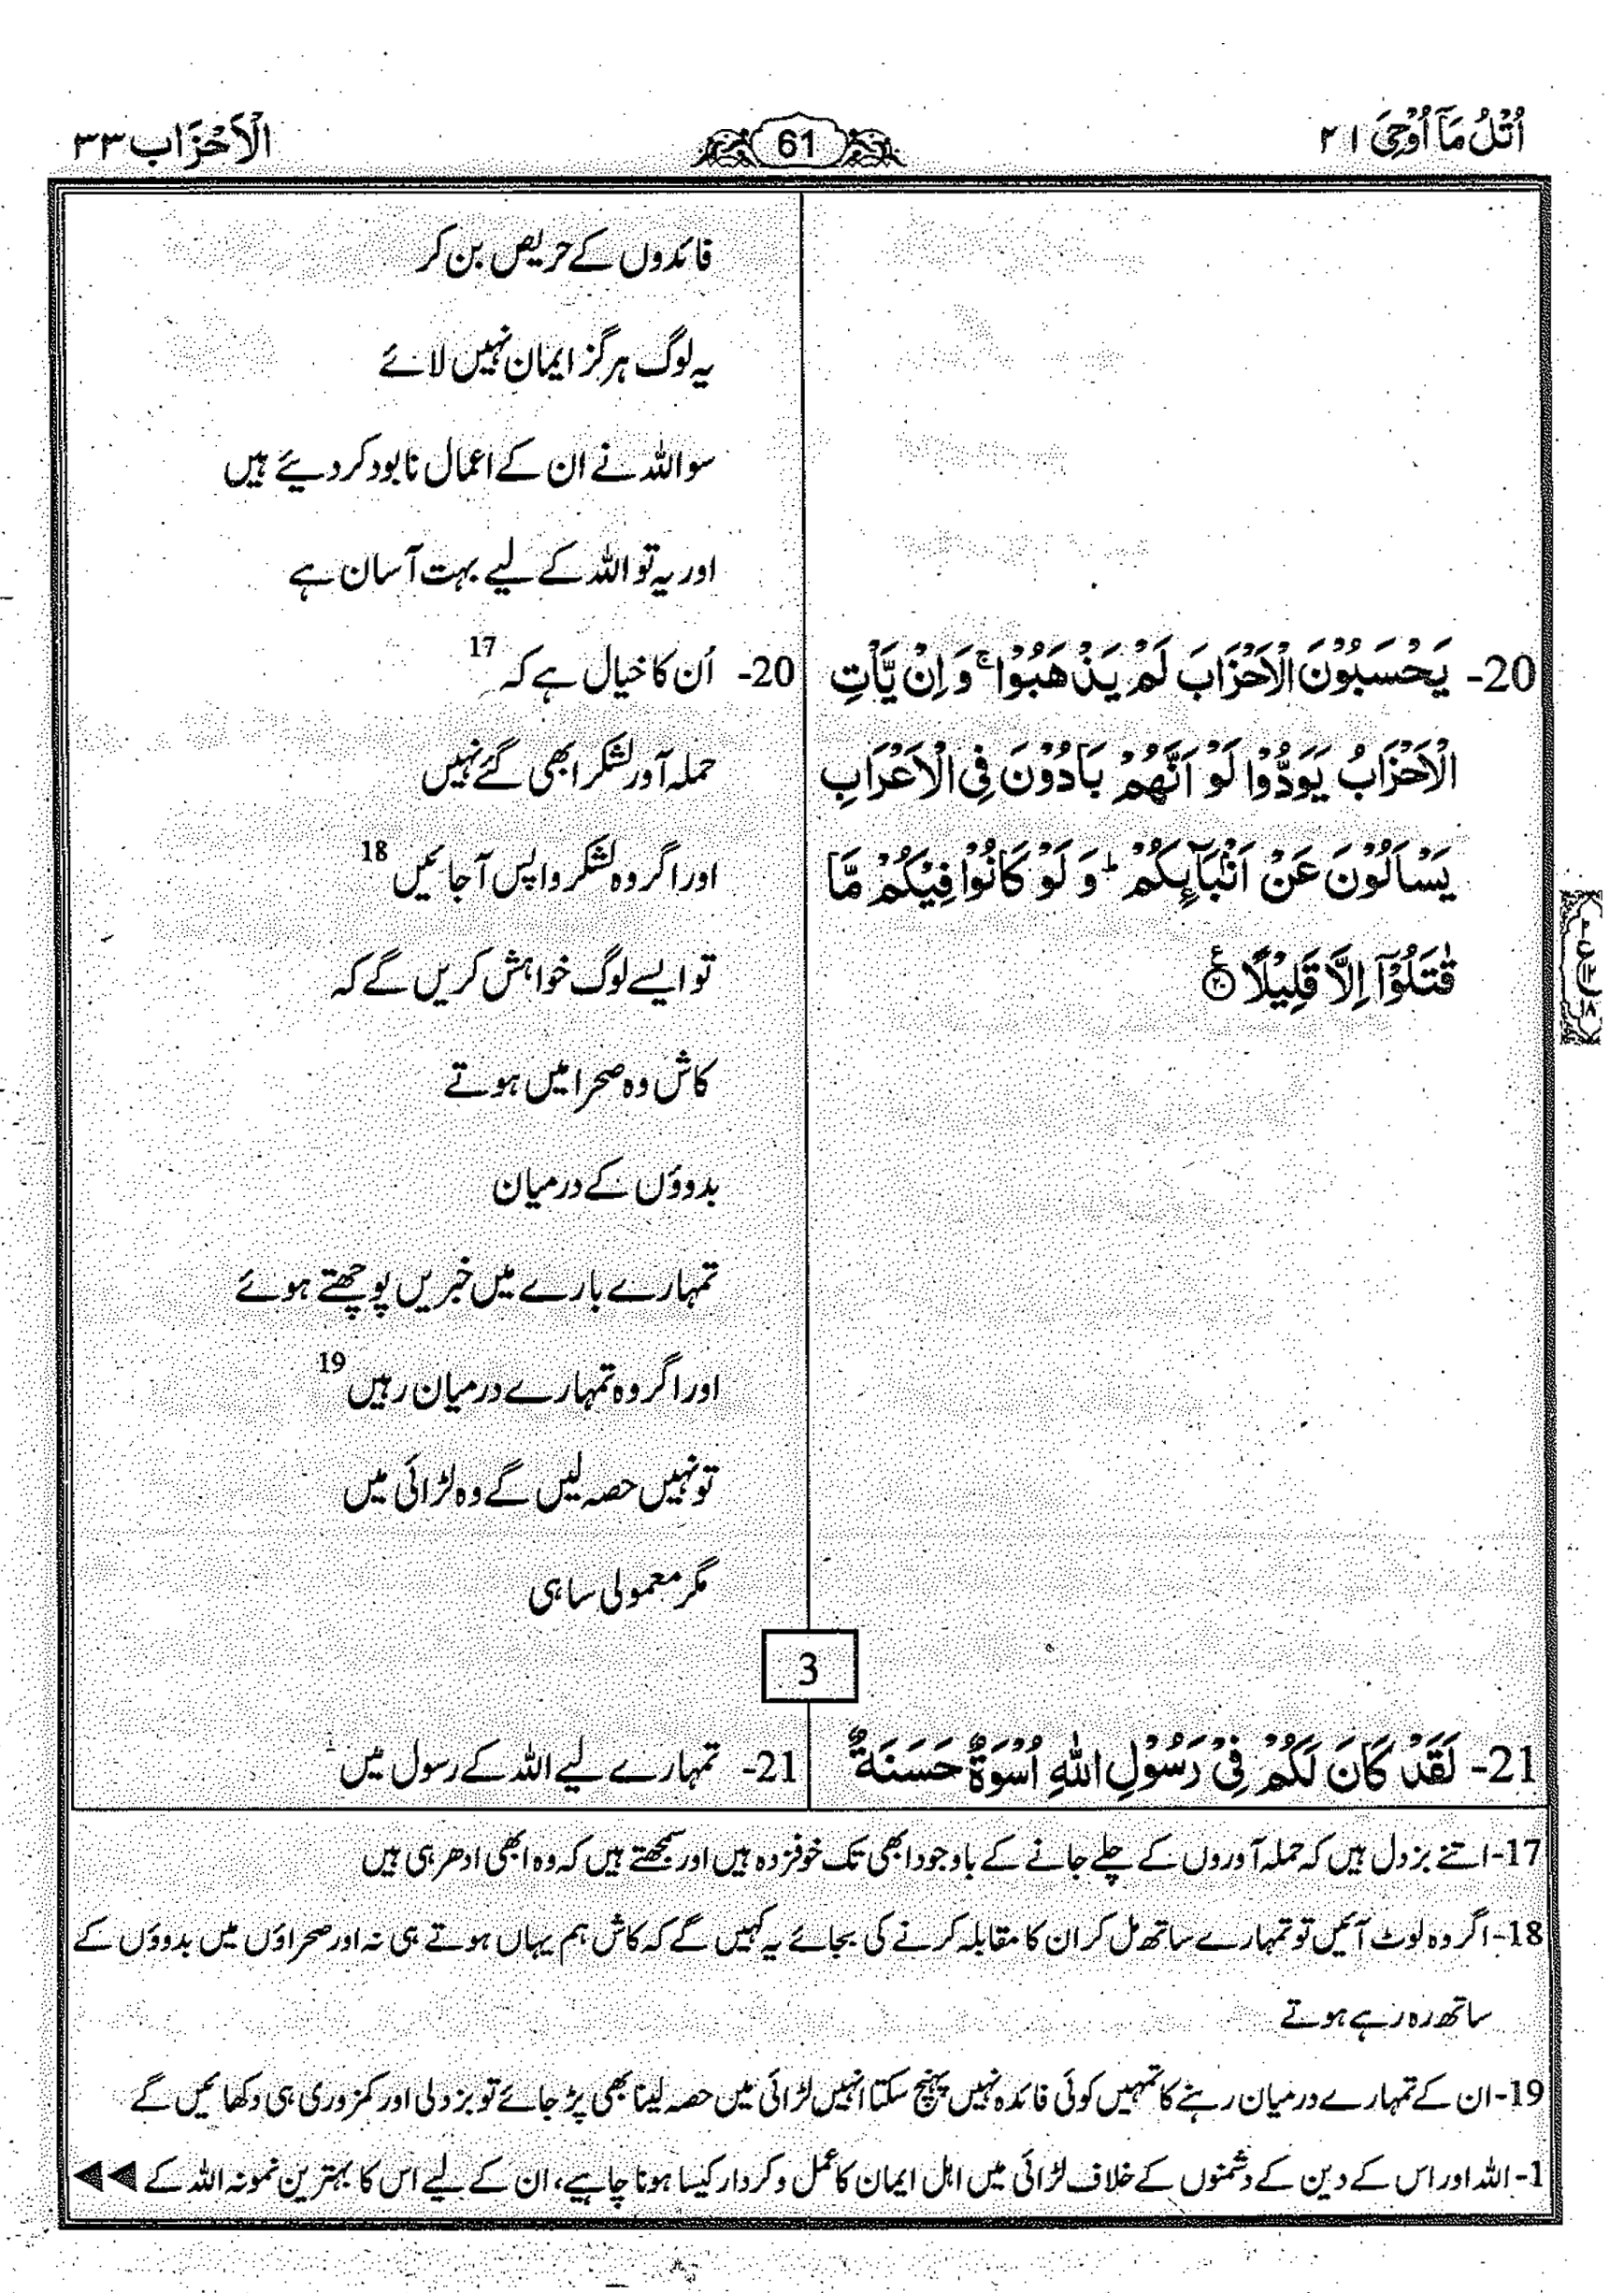 اُتْلُ مَآ اُوْحِیَ ۲۱
61
اَلْاَحْزَاب ۳۳
فائدوں کے حریص بن کر
یہ لوگ ہرگز ایمان نہیں لائے
سو اللہ نے ان کے اعمال نابود کر دیئے ہیں
اور یہ تو اللہ کے لیے بہت آسان ہے
20- یَحْسَبُوْنَ الْاَحْزَابَ لَمْ یَذْهَبُوْا ۚ وَ اِنْ یَّاْتِ
الْاَحْزَابُ یَوَدُّوْا لَوْ اَنَّهُمْ بَادُوْنَ فِی الْاَعْرَابِ
یَسْاَلُوْنَ عَنْ اَنْۢبَآىِٕكُمْ ؕ وَ لَوْ كَانُوْا فِیْكُمْ مَّا
قٰتَلُوْۤا اِلَّا قَلِیْلًا ۠ ۝۲۰
20- اُن کا خیال ہے کہ 17
حملہ آور لشکر ابھی گئے نہیں
اور اگر وہ لشکر واپس آ جائیں 18
تو ایسے لوگ خواہش کریں گے کہ
کاش وہ صحرا میں ہوتے
بدوؤں کے درمیان
تمہارے بارے میں خبریں پوچھتے ہوئے
اور اگر وہ تمہارے درمیان رہیں 19
تو نہیں حصہ لیں گے وہ لڑائی میں
مگر معمولی سا ہی
3
21- لَقَدْ كَانَ لَكُمْ فِیْ رَسُوْلِ اللّٰهِ اُسْوَةٌ حَسَنَةٌ
21- تمہارے لیے اللہ کے رسول میں
17- اتنے بزدل ہیں کہ حملہ آوروں کے چلے جانے کے باوجود ابھی تک خوفزدہ ہیں اور سمجھتے ہیں کہ وہ ابھی ادھر ہی ہیں
18- اگر وہ لوٹ آئیں تو تمہارے ساتھ مل کر ان کا مقابلہ کرنے کی بجائے یہ کہیں گے کہ کاش ہم یہاں ہوتے ہی نہ اور صحراؤں میں بدوؤں کے
ساتھ رہ رہے ہوتے
19- ان کے تمہارے درمیان رہنے کا تمہیں کوئی فائدہ نہیں پہنچ سکتا انہیں لڑائی میں حصہ لینا بھی پڑ جائے تو بزدلی اور کمزوری ہی دکھائیں گے
1- اللہ اور اس کے دین کے دشمنوں کے خلاف لڑائی میں اہل ایمان کا عمل و کردار کیسا ہونا چاہیے، ان کے لیے اس کا بہترین نمونہ اللہ کے ◀◀